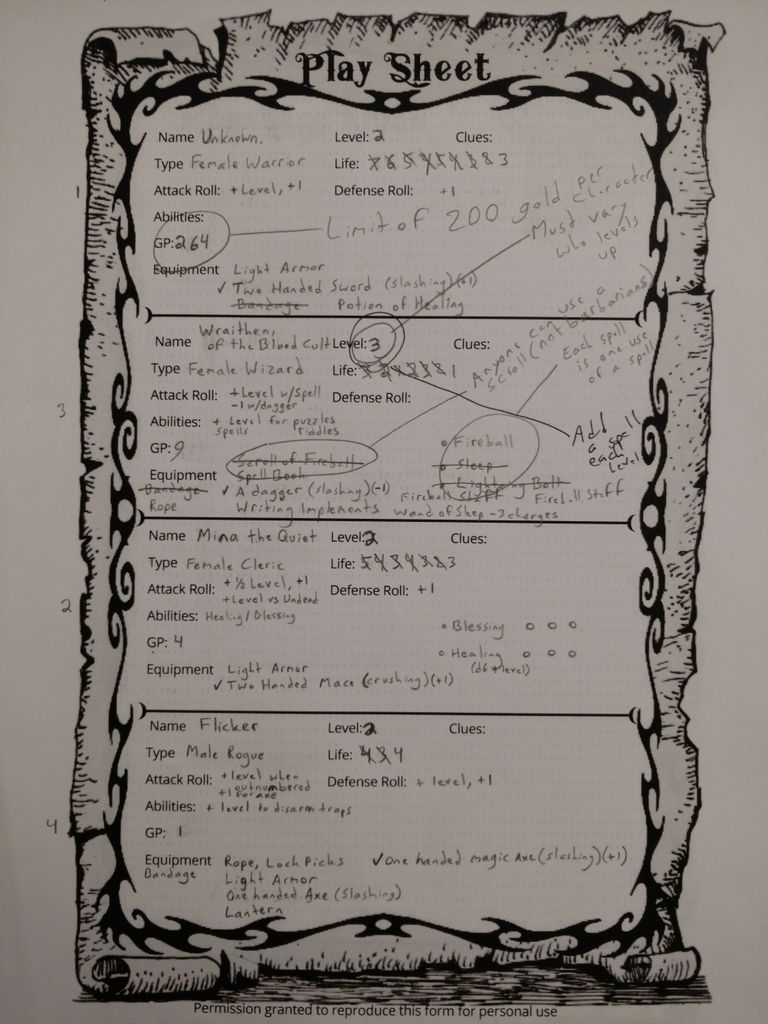 Play Sheet
Name Unknown. Level: 2 Clues:
Type Female Warrior Life: 3
1
Attack Roll: + Level, +1 Defense Roll: +1
Abilities:
GP: 264
Limit of 200 gold per character
Must vary who levels up
Equipment Light Armor
✓ Two Handed Sword (slashing) (+1)
Bandage Potion of Healing
Name Wraithen, of the Blood Cult Level: 3 Clues:
Type Female Wizard Life: 1
3
Attack Roll: + Level w/Spell
-1 w/dagger
Defense Roll:
Anyone can use a scroll (not barbarians)
Each spell is one use of a spell
Abilities: + Level for puzzles
spells riddles
GP: 9
Scroll of Fireball
Fireball
Add a spell each level
Equipment Spell Book
Sleep
Lightning Bolt
Bandage ✓ A dagger (slashing) (-1) Fireball Staff Fireball Staff
Rope Writing Implements Wand of Sleep - 3 charges
Name Mina the Quiet Level: 2 Clues:
Type Female Cleric Life: 3
Attack Roll: + ½ Level, +1
+ Level vs Undead
Defense Roll: +1
2
Abilities: Healing/Blessing
Blessing o o o
GP: 4
Healing o o o
(d6 + level)
Equipment Light Armor
✓ Two Handed Mace (crushing) (+1)
Name Flicker Level: 2 Clues:
Type Male Rogue Life: 4
Attack Roll: + level when outnumbered
+1 for axe
Defense Roll: + level, +1
Abilities: + level to disarm traps
4
GP: 1
Equipment Rope, Lock Picks ✓ One handed magic Axe (slashing) (+1)
Bandage Light Armor
One handed Axe (Slashing)
Lantern
Permission granted to reproduce this form for personal use